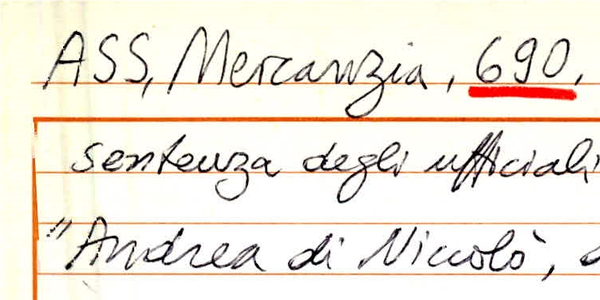 ASS, Mercanzia, 690,
sentenza degli ufficiali
"Andrea di Niccolò,